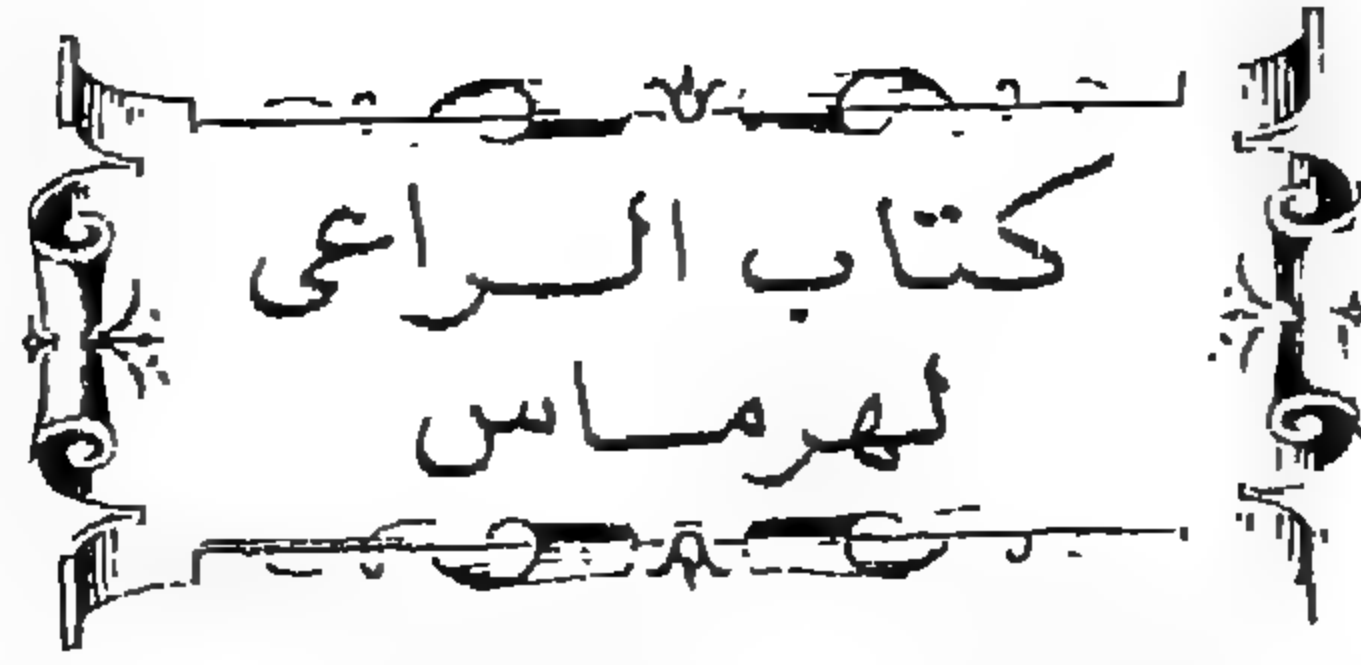 كتاب الراعى
لهرماس